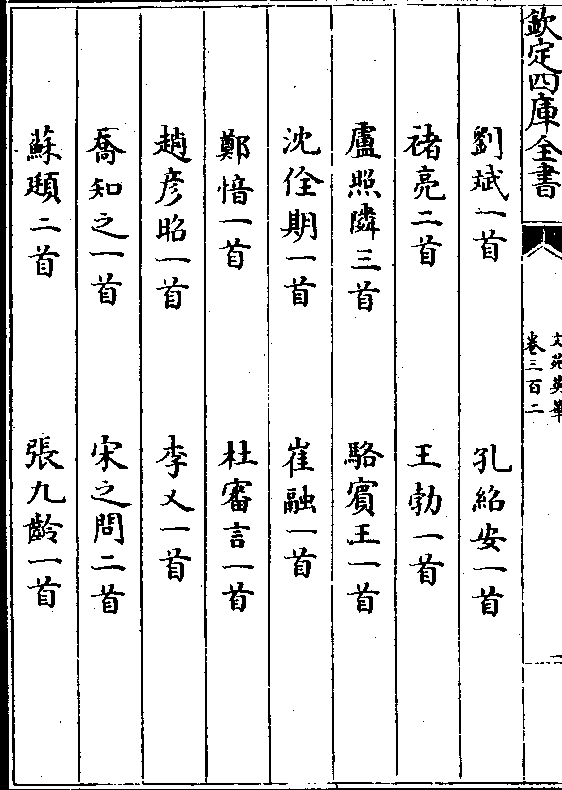 欽定四庫全書
文苑英華
卷三百二
劉斌一首 孔紹安一首
禇亮二首 王勃一首
盧照隣三首 駱賓王一首
沈佺期一首 崔融一首
鄭愔一首 杜審言一首
趙彦昭一首 李乂一首
喬知之一首 宋之問二首
蘇頲二首 張九齡一首